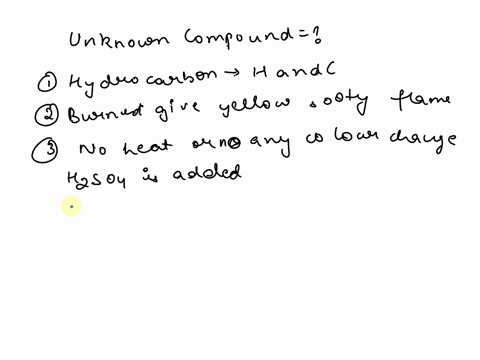 Unknown Compound = ?
① Hydrocarbon → H and C
② Burned give yellow sooty flame
③ No heat or no any colour change
H2SO4 is added